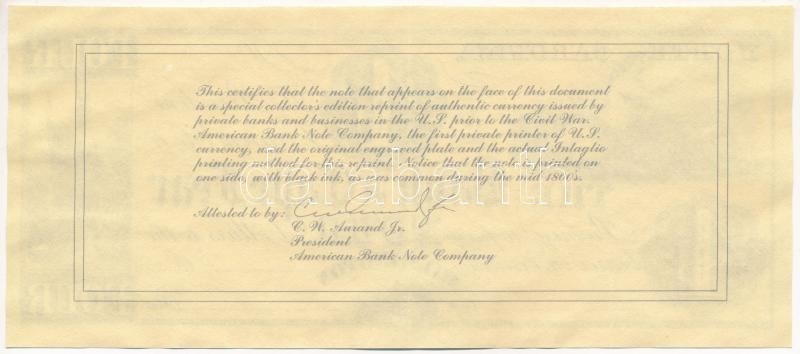 This certifies that the note that appears on the face of this document
is a special collector's edition reprint of authentic currency issued by
private banks and businesses in the U.S. prior to the Civil War.
American Bank Note Company, the first private printer of U.S.
currency, used the original engraved plate and the actual Intaglio
printing method for this reprint. Notice that the note is printed on
one side, with black ink, as was common during the mid 1800's.
darabanth
Attested to by:
C. W. Aurand Jr.
President
American Bank Note Company